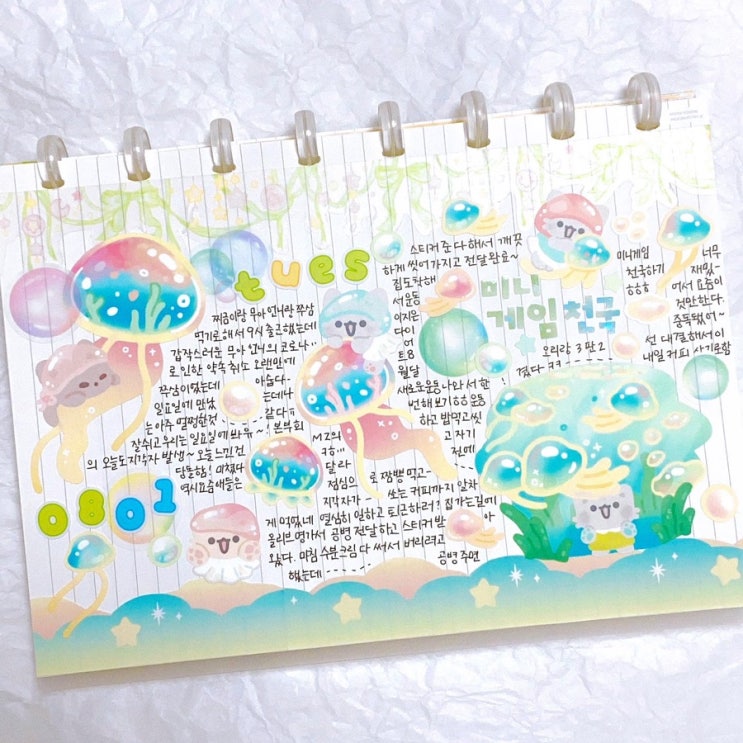 tues
찌금이랑 무아 언니랑 쭈삼
먹기로해서 9시 출근했는데
갑작스러운 무아 언니의 코로나..
로 인한 약속 취소 오랜만에
쭈삼이었는데 아쉽다-
일요일에 만났는데 나
는 아주 멀쩡한것 같다ㅠ
잘쉬고 우리는 일요일에 봐유~! 본부회
의 오늘도 지각자 발생~ 오늘 느낀건
당돌함! 미쳤다
역시 요즘애들은
MZ의
ㅋㅎ...
달라
점심으로 짬뽕 먹고-
지각자가 쏘는 커피까지 알차
게 먹었네 열심히 일하고 퇴근하려? 집가는길에
올리브영가서 공병 전달하고 스티커 받아
왔다. 마침 수분크림 다 써서 버리려고
했는데 공병 주면
0801
스티커 준다해서 깨끗
하게 씻어가지고 전달완료~
집도착해
서 운동
이지은
다이
어
트 8
월달
새로운운동 나와서 한
번해보기ㅎㅎ 운동
하고 밥먹고씻
고 자기
전에
미니
게임 천국
미니게임
천국하기
ㅎㅎㅎ
너무
재밌-
어서 요즘이
것만한다.
중독됐어~
오리랑 3판 2
선 대결해서 이
겼다 ㅋㅋ
내일 커피 사기로함